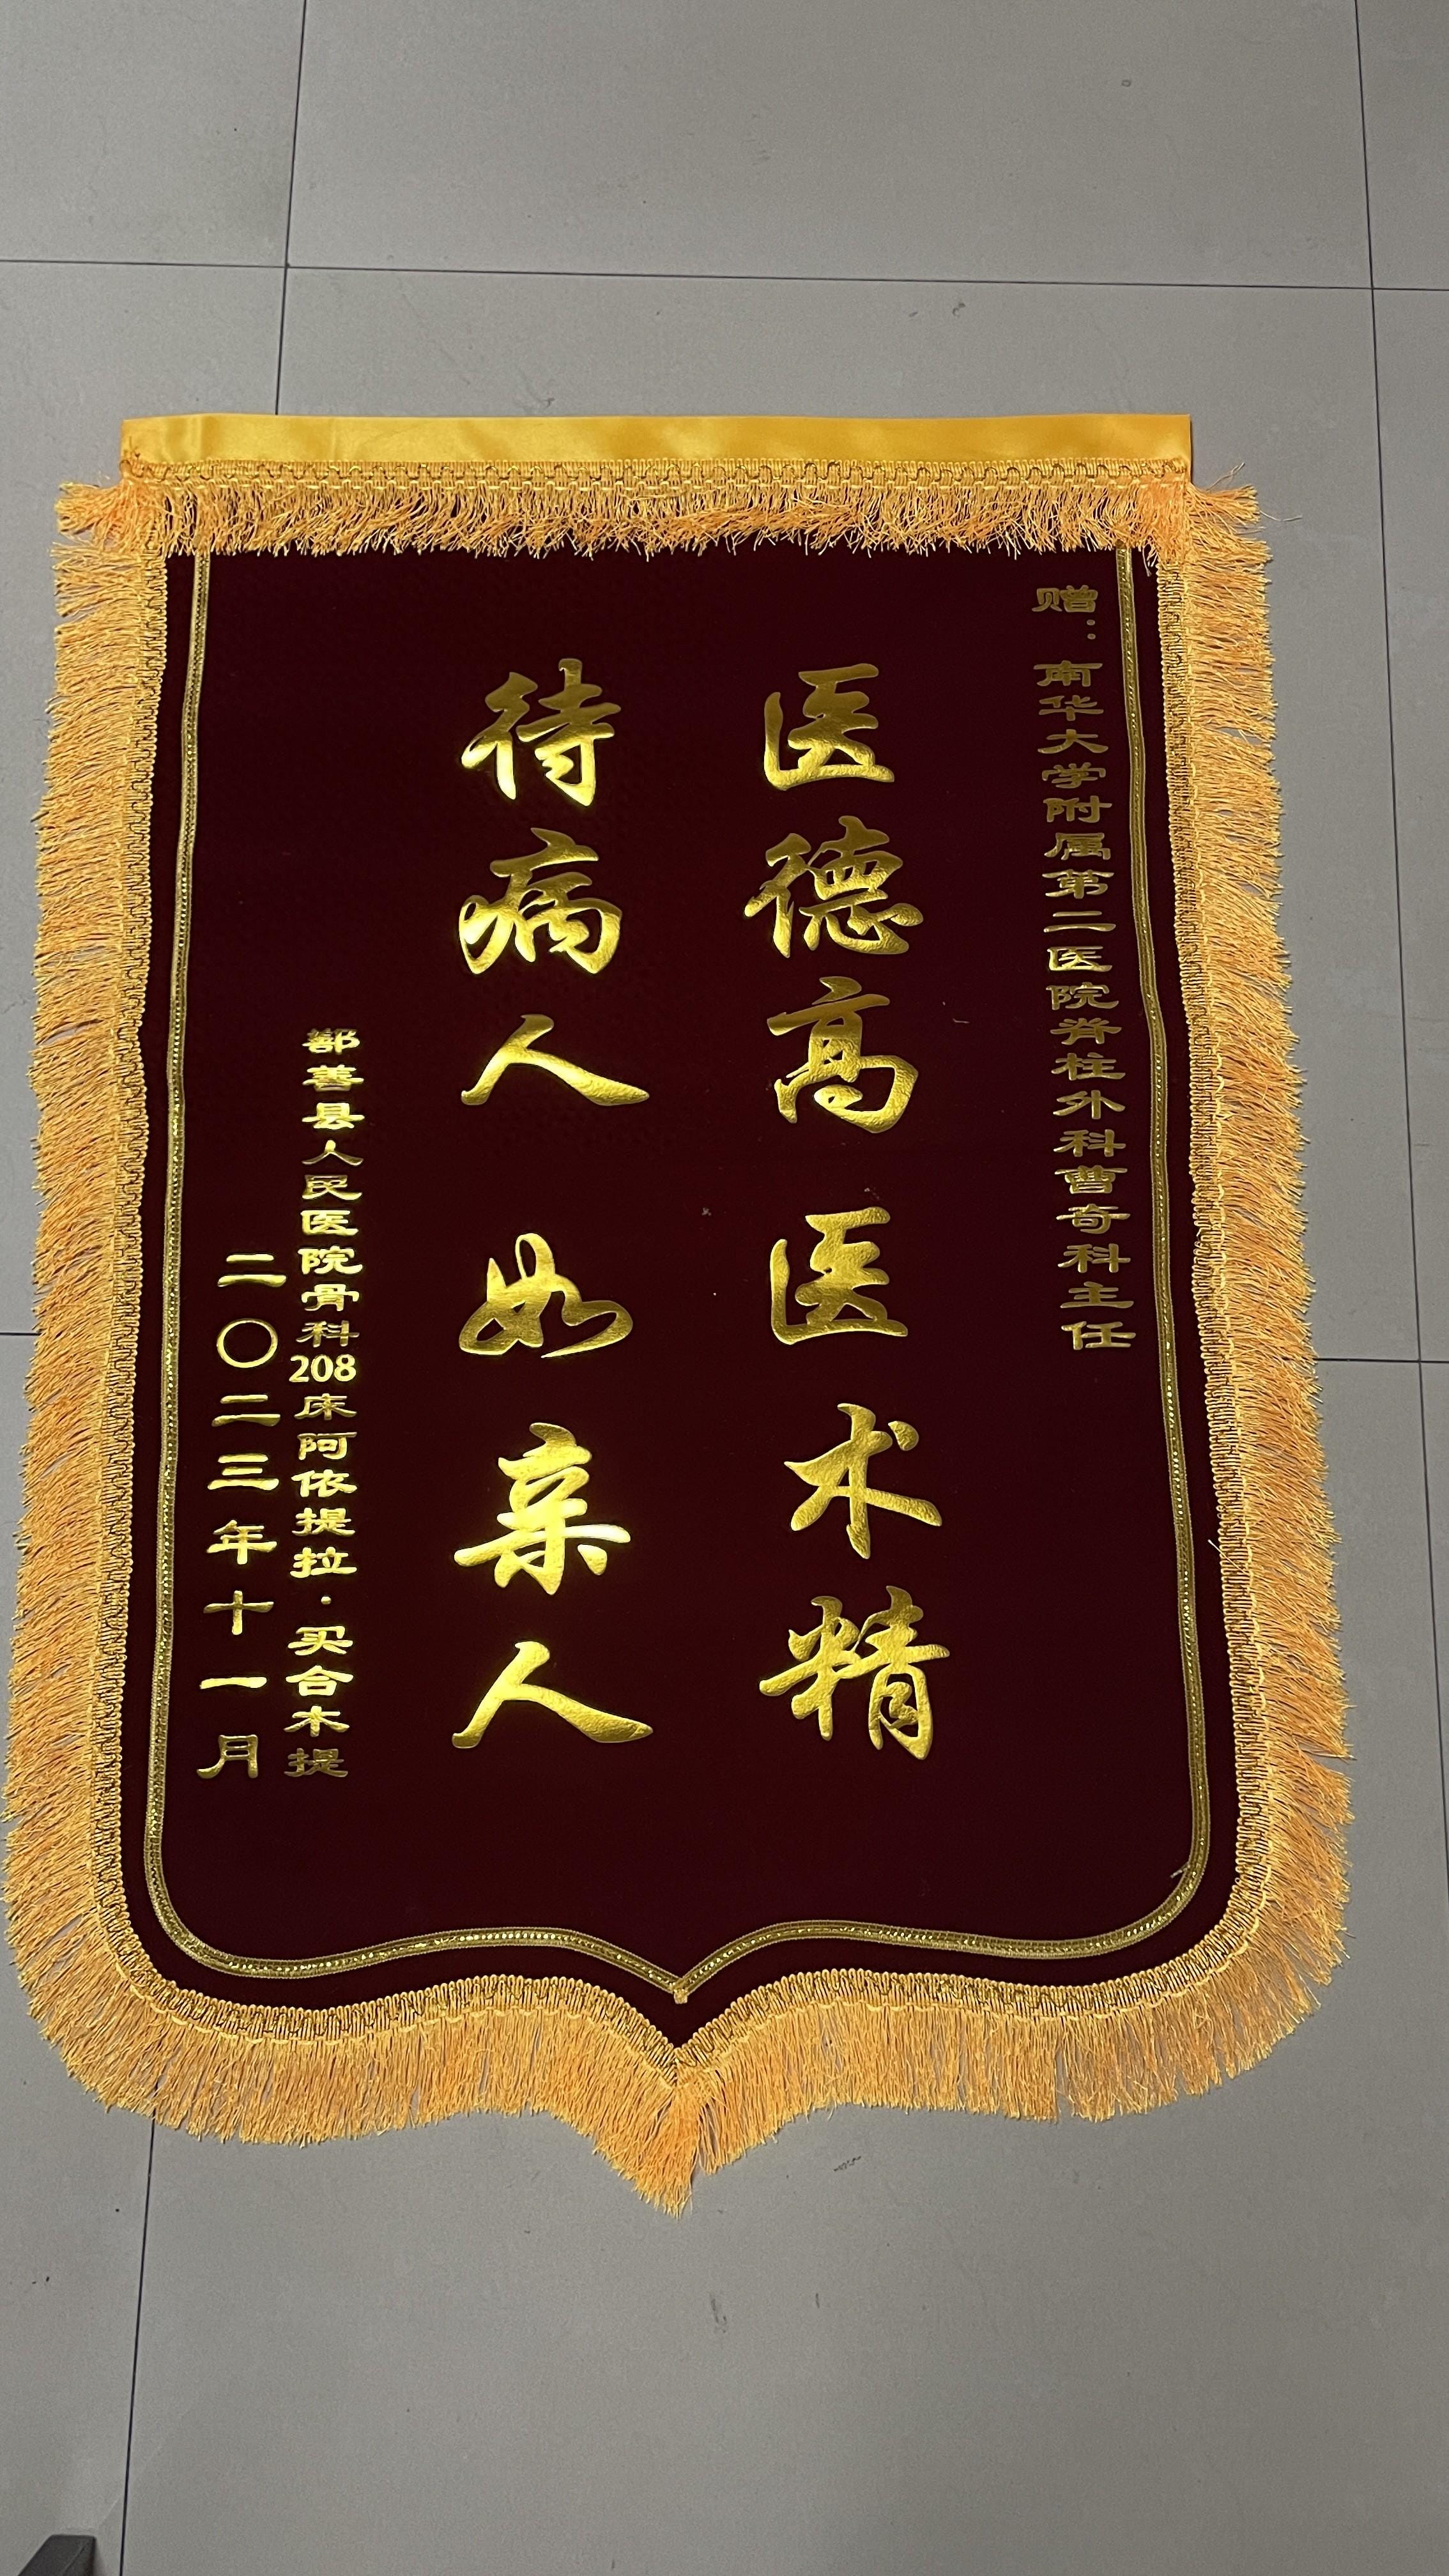 赠：南华大学附属第二医院脊柱外科曹奇科主任
医德高医术精
待病人如亲人
鄯善县人民医院骨科208床阿依提拉·买合木提
二〇二三年十一月